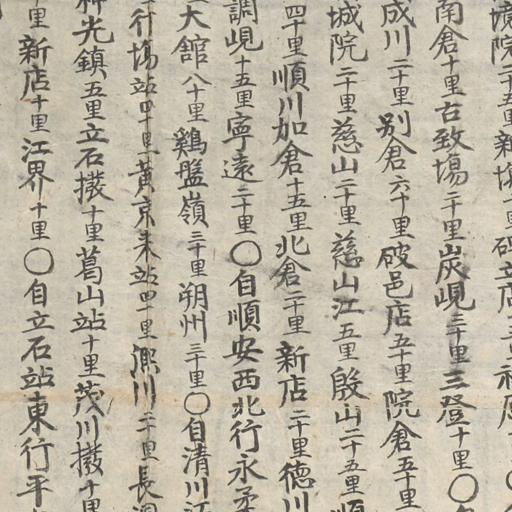 境院二十五里新場十里碑立店五里祥原
南倉十里古致場二十里炭峴三十里三登十里〇
成川二十里别倉六十里破邑店五十里院倉五十里
城院二十里慈山二十里慈山江五里殷山二十五里順
四十里順川加倉十五里北倉二十里新店二十里德川
調峴十五里寧遠二十里〇自順安西北行永柔
大舘八十里鷄盤嶺三十里朔州三十里〇自清川江
行塲站四十里黄京来站四十里渊川二十里長洞
神光鎮五里立石撥十里葛山站十里茂川撥十里
里新店十里江界十里〇自立石站東行平